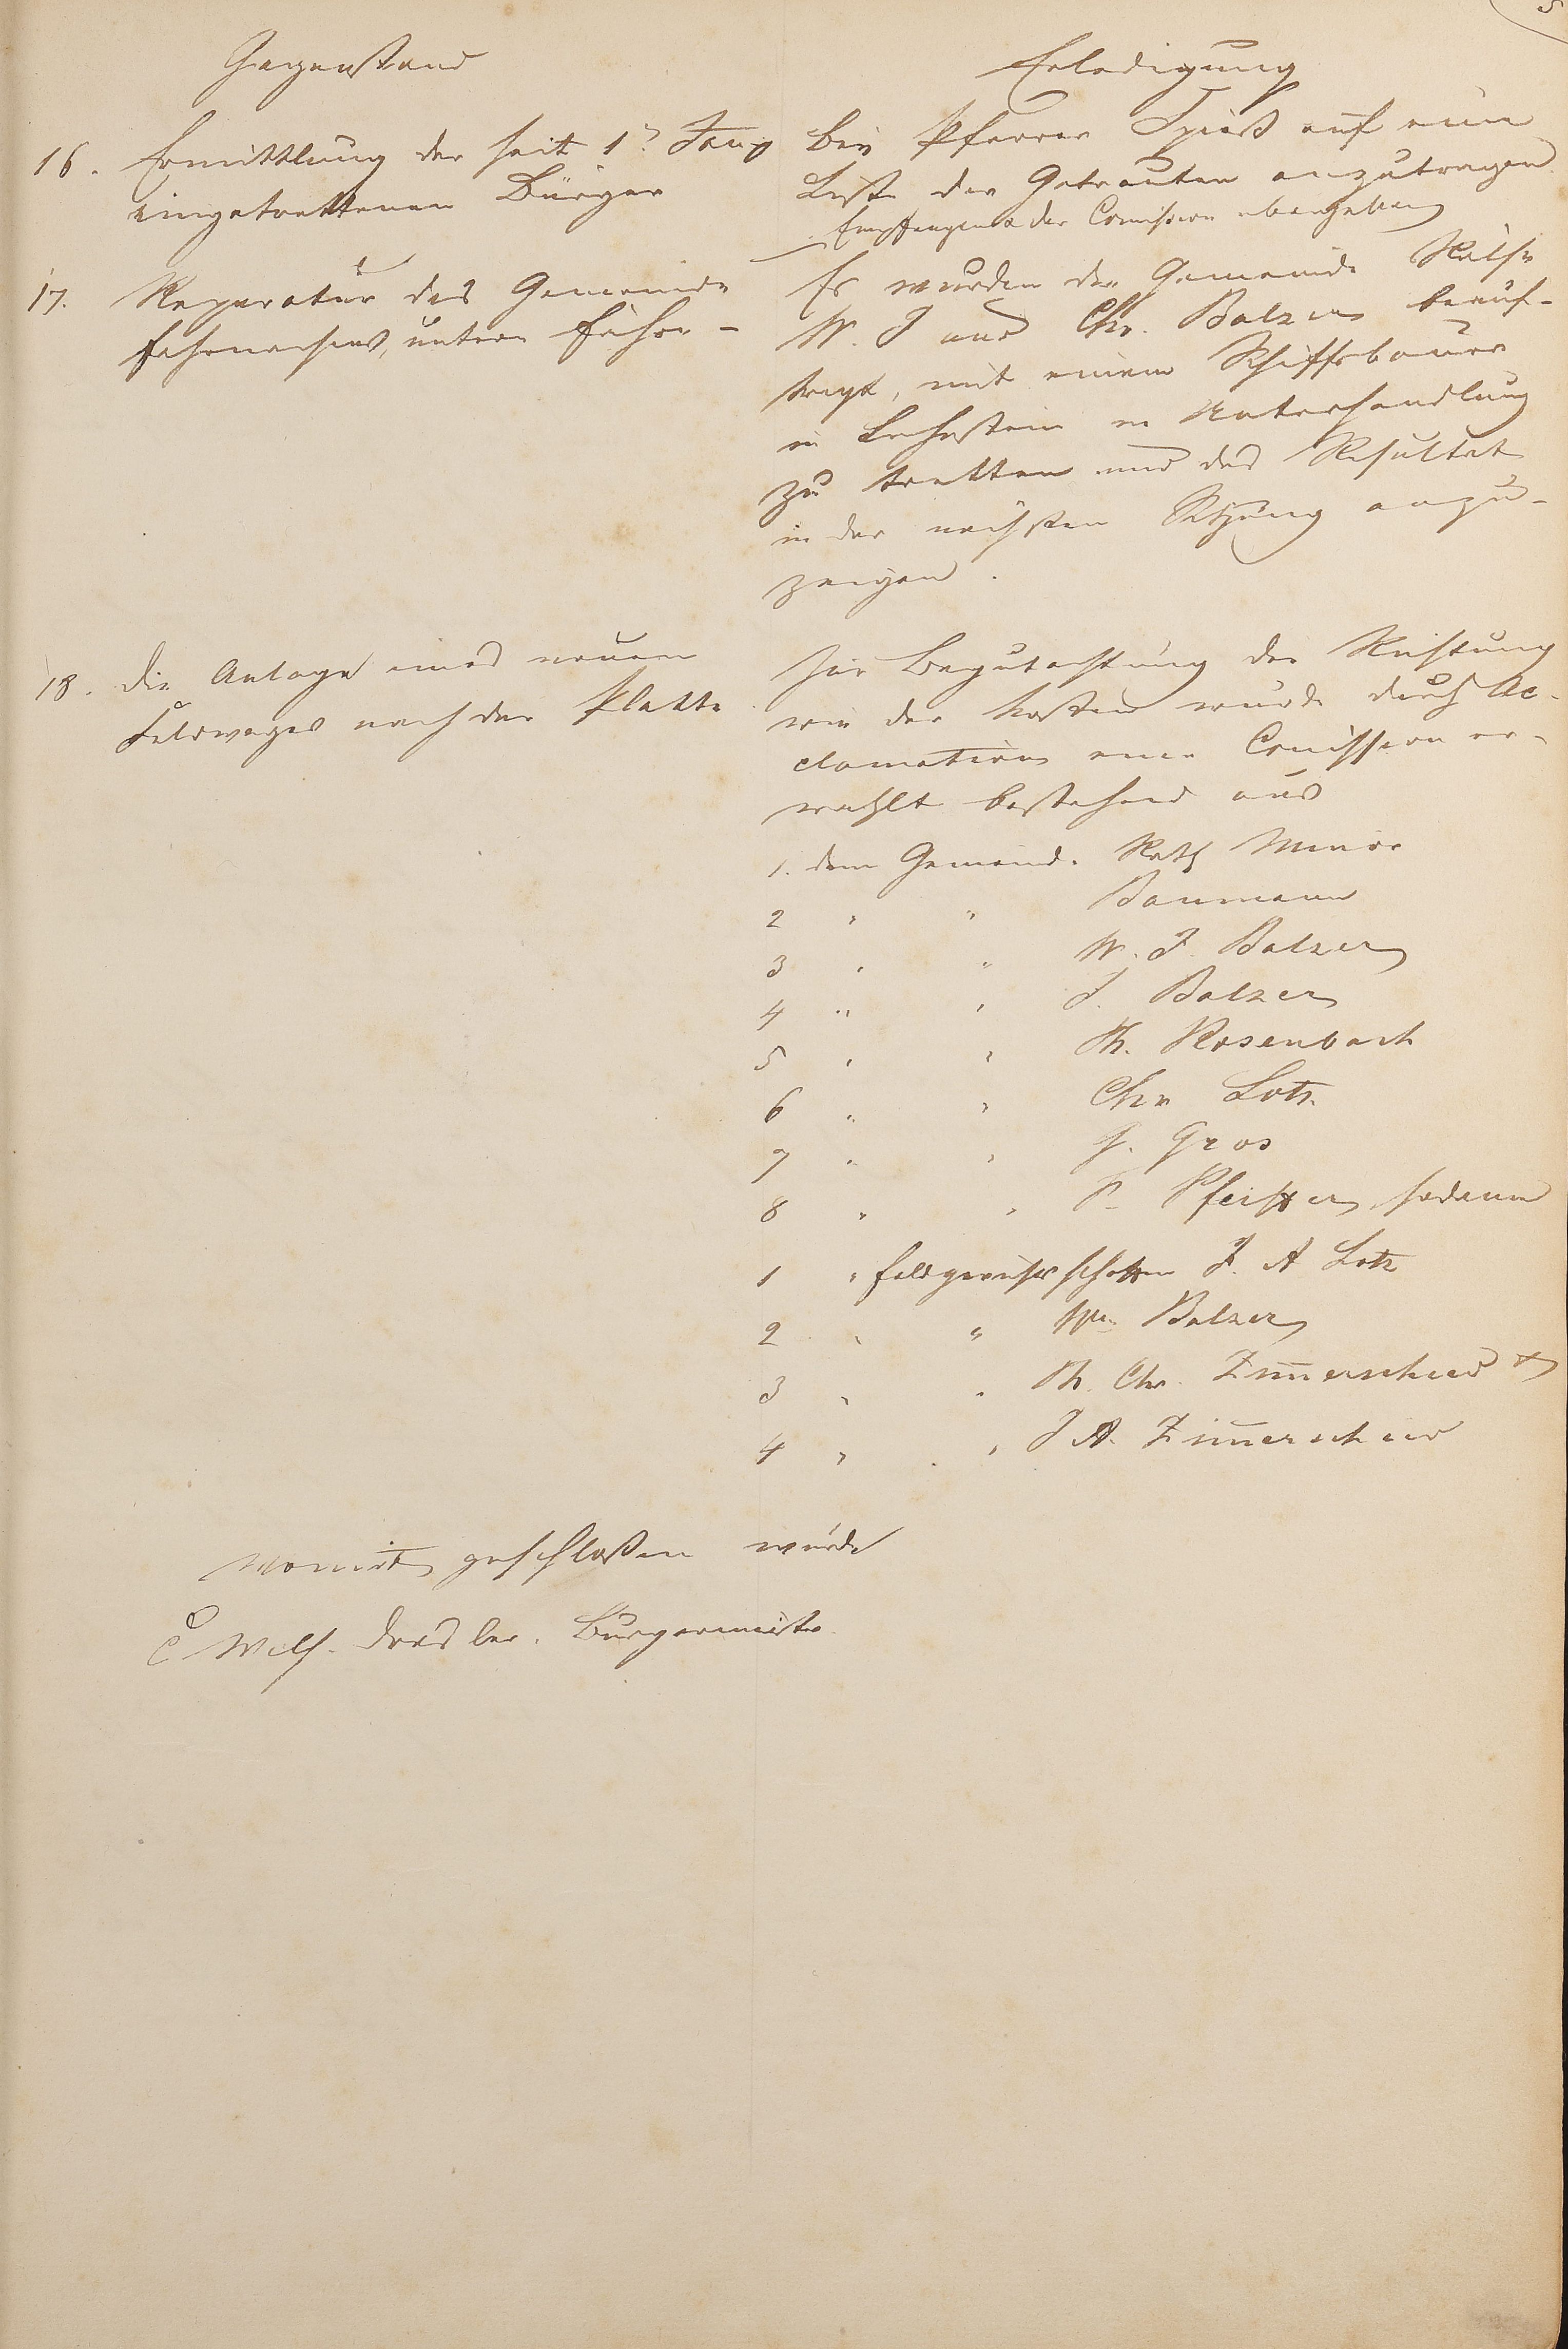 5
Gegenstand
Erledigung
16. Ermittlung der seit 1n Jan
eingetrettenen Bürger
bei Pfarrer Spieß auf eine
Liste der Getrauten anzutragen
Empfangen & der Comission übergeben
17. Reparatur des Gemeinde
fahrnachens, untere Fähre -
Es wurden die Gemeinde Räthe
W. J und Chr. Balzer beauf-
tragt, mit einem Schiffsbauer
in Lahnstein in Unterhandlung
zu tretten und das Resultat
in der nächsten Sitzung anzu-
zeigen.
18. Die Anlage eines neuen
Feldweges nach der Platte
Zur Begutachtung der Richtung
wie der Kosten wurde durch Ac-
clamation eine Comission er-
wählt bestehend aus
1. dem Gemeinde Rath Minor
2 " " Baumann
3 " " W. J. Balzer
4 " " J. Balzer
5 " " Ph. Rosenbach
6 " " Chr Lotz
7 " " J. Gros
8 " " P. Pfeiffer, sodann
1 " Feldgerichtsschöffen J. A Lotz
2 " " Wm Balzer
3 " " Ph. Chr. Zim̄erschied
4 " " J A. Zim̄erschied
womit geschloßen wurde
C Wilh. Dresler. Bürgermeister